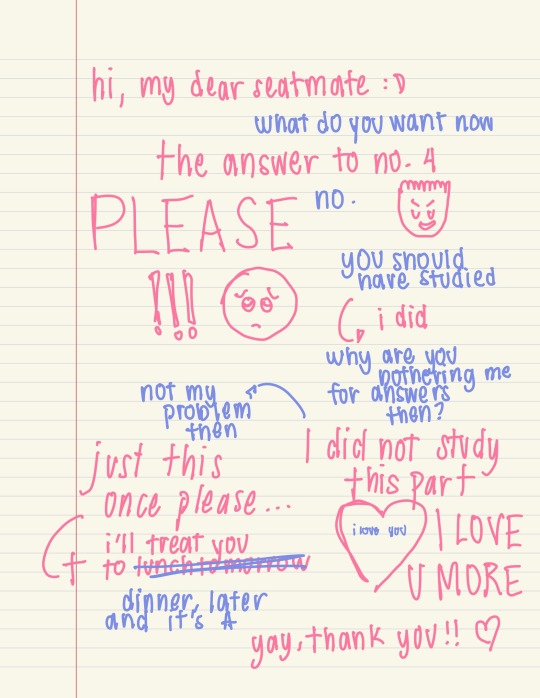 hi, my dear seatmate :D
what do you want now
the answer to no. 4
no.
PLEASE
!!!
you should
have studied
i did
why are you
bothering me
for answers
then?
I did not study
this part
not my
problem
then
just this
once please...
i'll treat you
to lunch tomorrow
dinner, later
and it's A
i love you
I LOVE
U MORE
yay, thank you!! ♡